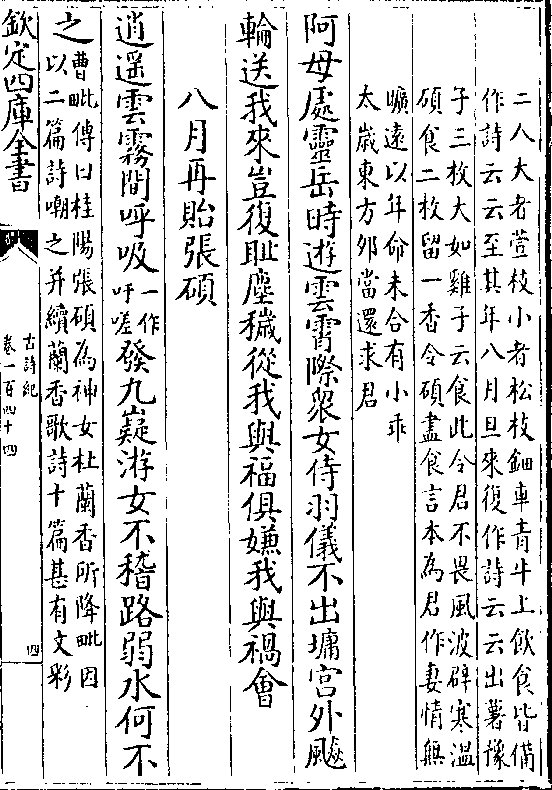 二人大者萱枝小者松枝鈿車青牛上飲食皆備
作詩云云至其年八月旦來復作詩云云出薯豫
子三枚大如雞子云食此令君不畏風波辟寒溫
碩食二枚留一香令碩盡食言本為君作妻情無
曠遠以年命未合有小乖
太歲東方卯當還求君
阿母處靈岳時遊雲霄際衆女侍羽儀不出墉宮外飈
輪送我來豈復耻塵穢從我與福俱嫌我與禍會
八月再貽張碩
逍遥雲霧間呼吸一作吁嗟發九嶷游女不稽路弱水何不
之曹毗傳曰桂陽張碩為神女杜蘭香所降毗因
以二篇詩嘲之并續蘭香歌詩十篇甚有文彩
欽定四庫全書
古詩紀
卷一百四十四
四